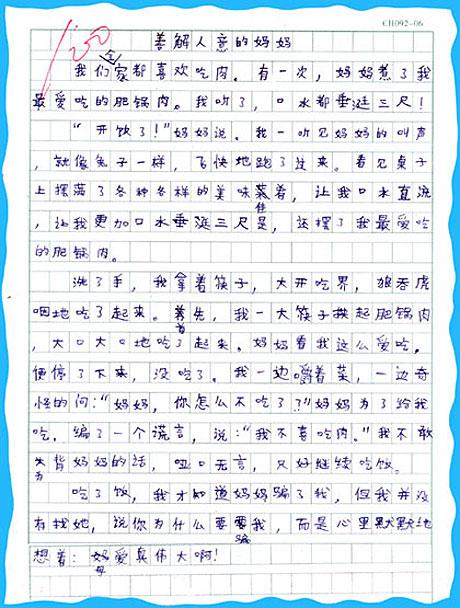 CH092-06
100
善解人意的妈妈
我们全家都喜欢吃肉。有一次，妈妈煮了我
最爱吃的肥锅肉。我听了，口水都垂涎三尺！
“开饭了！”妈妈说。我一听见妈妈的叫声
，就像兔子一样，飞快地跑了过来。看见桌子
上摆满了各种各样的美味菜肴，让我口水直流
，让我更加口水垂涎三尺是，还摆了我最爱吃
佳
的肥锅肉。
洗了手，我拿着筷子，大开吃界，狼吞虎
咽地吃了起来。首先，我一大筷子拱起肥锅肉
首
，大口大口地吃了起来。妈妈看我这么爱吃，
便停了下来，没吃了。我一边嚼着菜，一边奇
怪的问：“妈妈，你怎么不吃了？”妈妈为了给我
吃，编了一个谎言，说：“我不喜吃肉。”我不敢
失背妈妈的话，哑口无言，只好继续吃饭。
为
吃了饭，我才知道妈妈骗了我，但我并没
有找她，说你为什么要骗我，而是心里默默地
骗
想着：母爱真伟大啊！
母